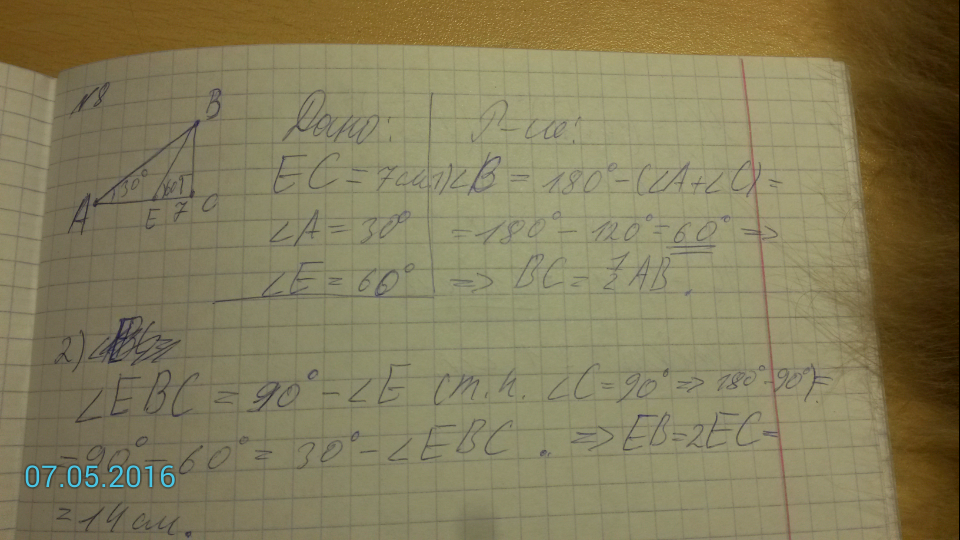 №8
B
30°
60°
A
E
7
C
Дано:
EC = 7см
∠A = 30°
∠E = 60°
Р-ие:
1) ∠B = 180° - (∠A + ∠C) =
= 180° - 120° = 60° =>
=> BC = 1/2 AB.
2)
∠EBC = 90° - ∠E (т.к. ∠C = 90° => 180° - 90°) =
= 90° - 60° = 30° - ∠EBC. => EB = 2EC =
= 14 см.
07.05.2016